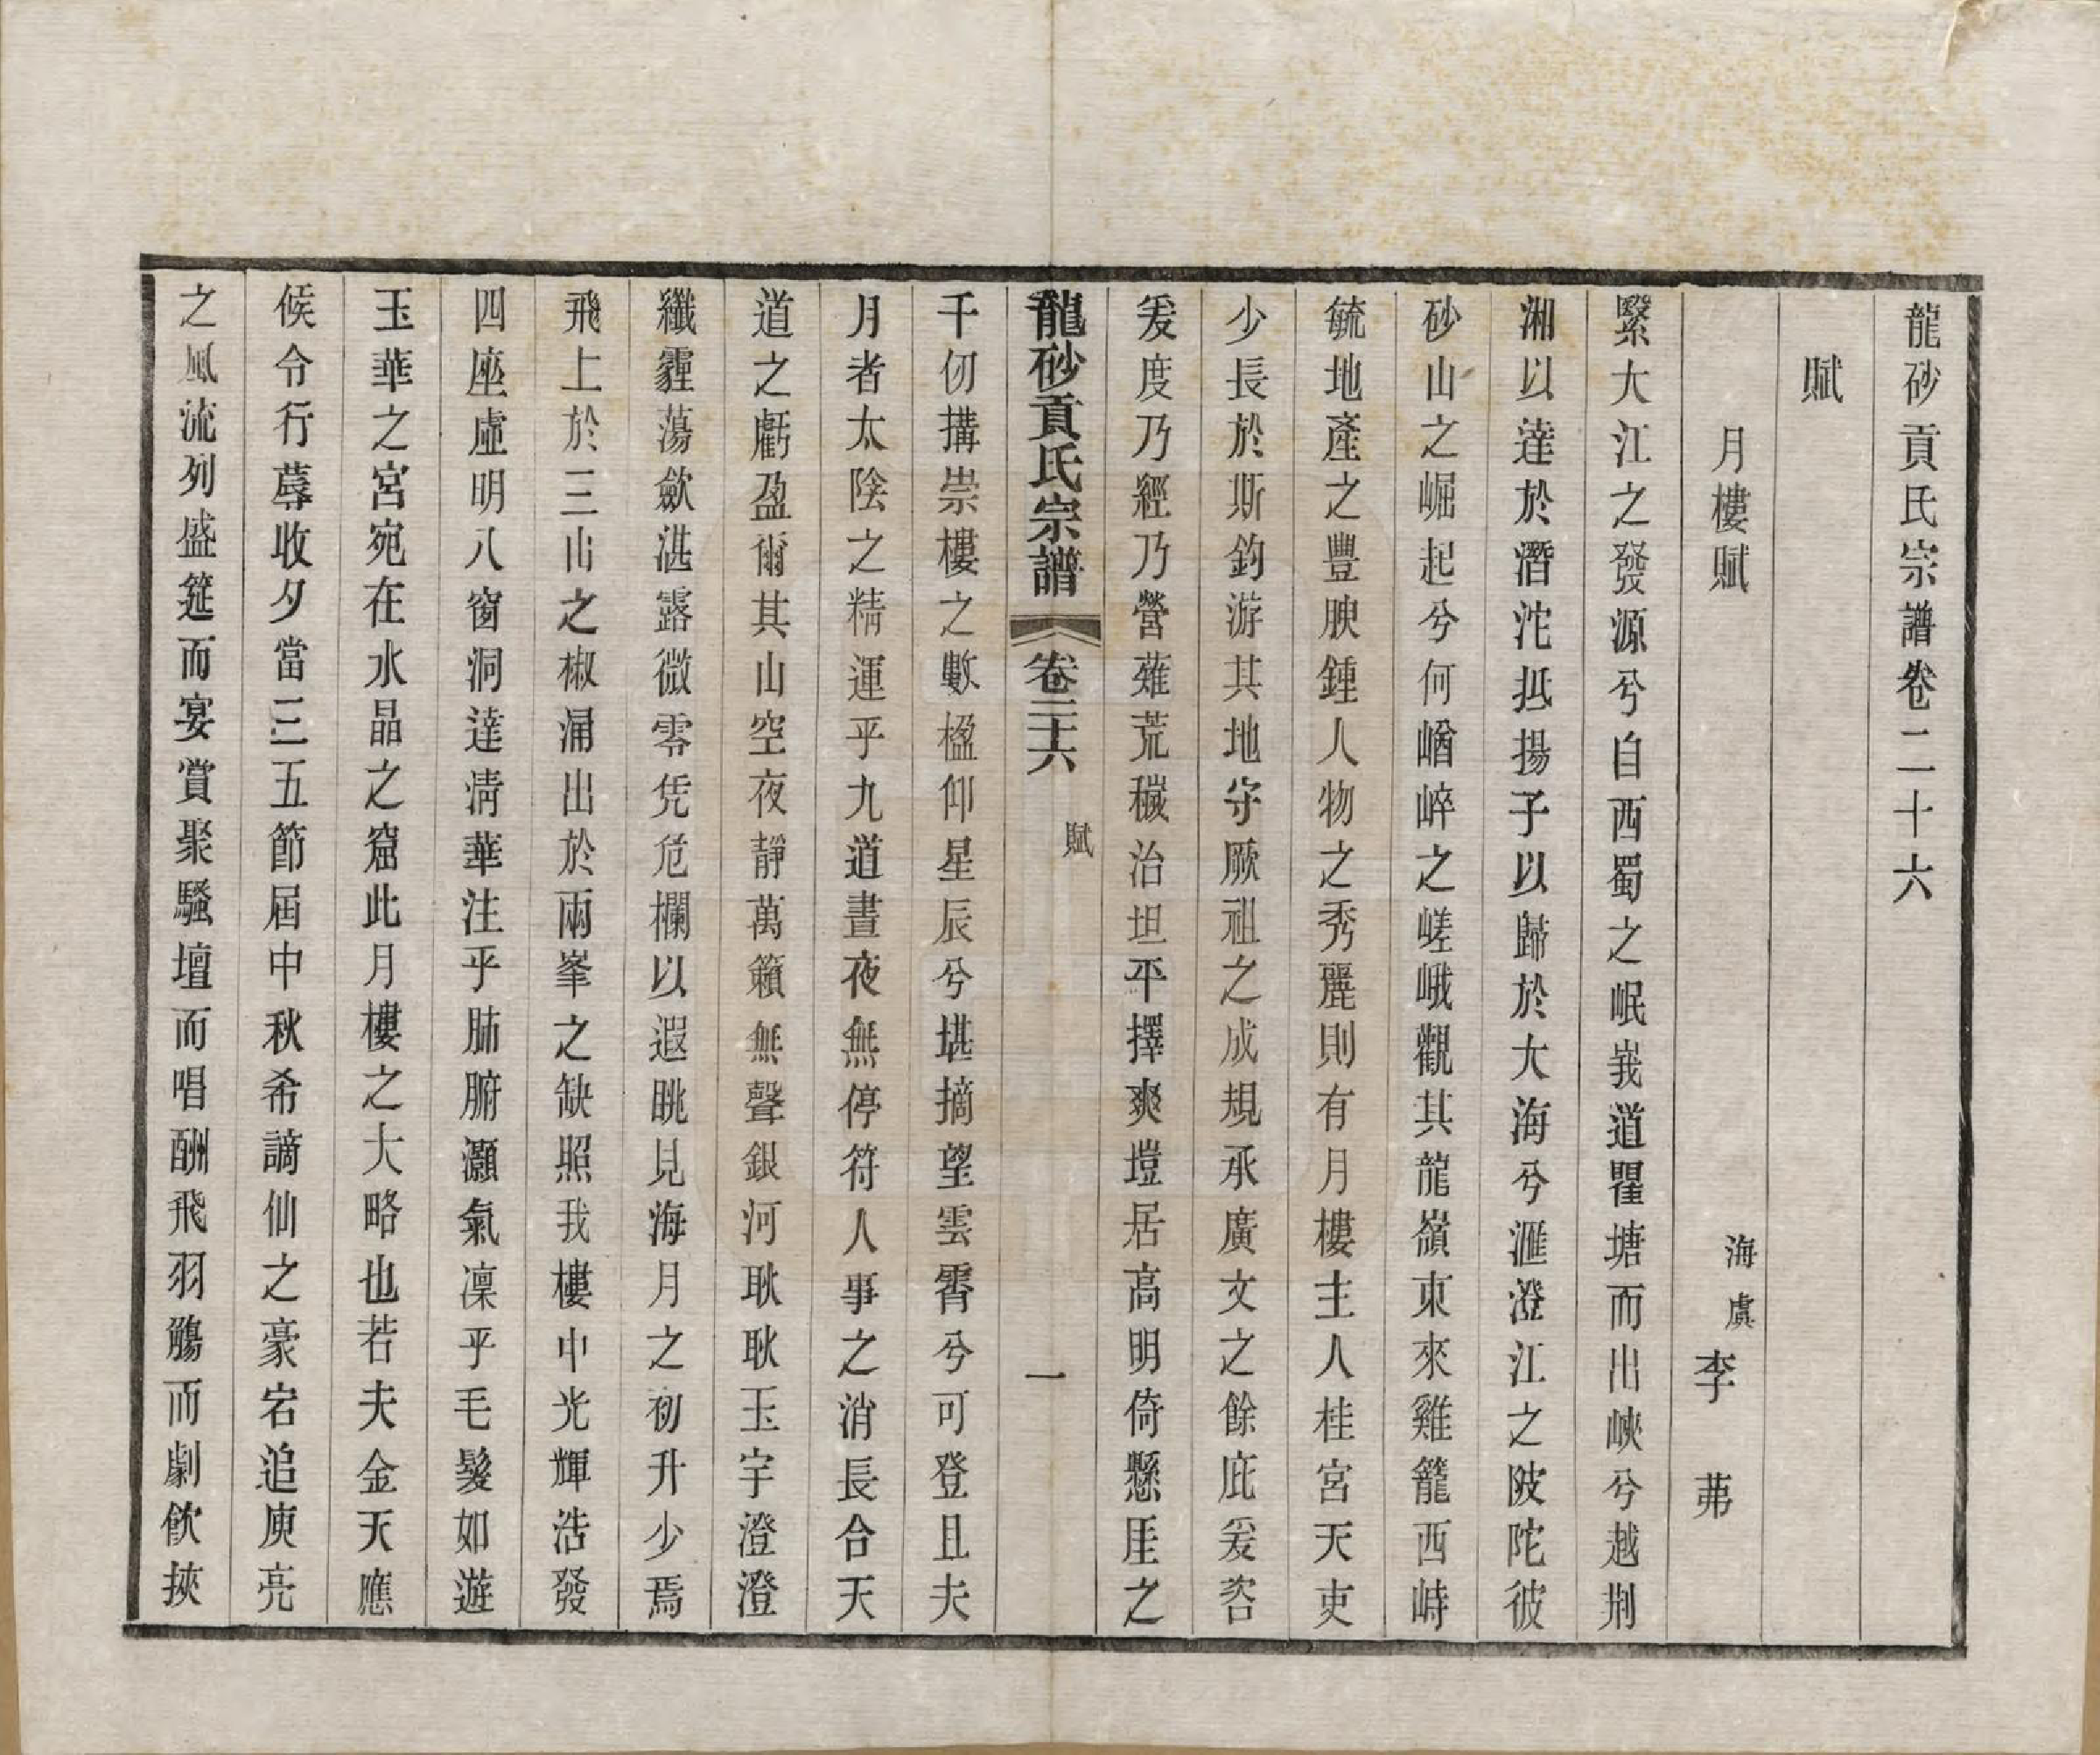 龍砂貢氏宗譜卷二十六
賦
月樓賦
海虞李 茀
繄大江之發源兮自西蜀之岷峩道瞿塘而出峽兮越荆
湘以達於潛沱抵揚子以歸於大海兮滙澄江之陂陀彼
砂山之崛起兮何崷崒之嵯峨觀其龍嶺東來雞籠西峙
毓地產之豐腴鍾人物之秀麗則有月樓主人桂宮天吏
少長於斯釣游其地守厥祖之成規承廣文之餘庇爰咨
爰度乃經乃營薙荒穢治坦平擇爽塏居高明倚懸厓之
龍砂貢氏宗譜 卷二十六 賦 一
千仞搆崇樓之數楹仰星辰兮堪摘望雲霄兮可登且夫
月者太陰之精運乎九道晝夜無停符人事之消長合天
道之虧盈爾其山空夜靜萬籟無聲銀河耿耿玉宇澄澄
纖霾蕩歛湛露微零凭危欄以遐眺見海月之初升少焉
飛上於三山之椒涌出於兩峯之缺照我樓中光輝浩發
四座虛明八窗洞達淸華注乎肺腑灝氣凜乎毛髮如遊
玉華之宮宛在水晶之窟此月樓之大略也若夫金天應
候令行蓐收夕當三五節屆中秋希謫仙之豪宕追庾亮
之風流列盛筵而宴賞聚騷壇而唱酬飛羽觴而劇飲挾